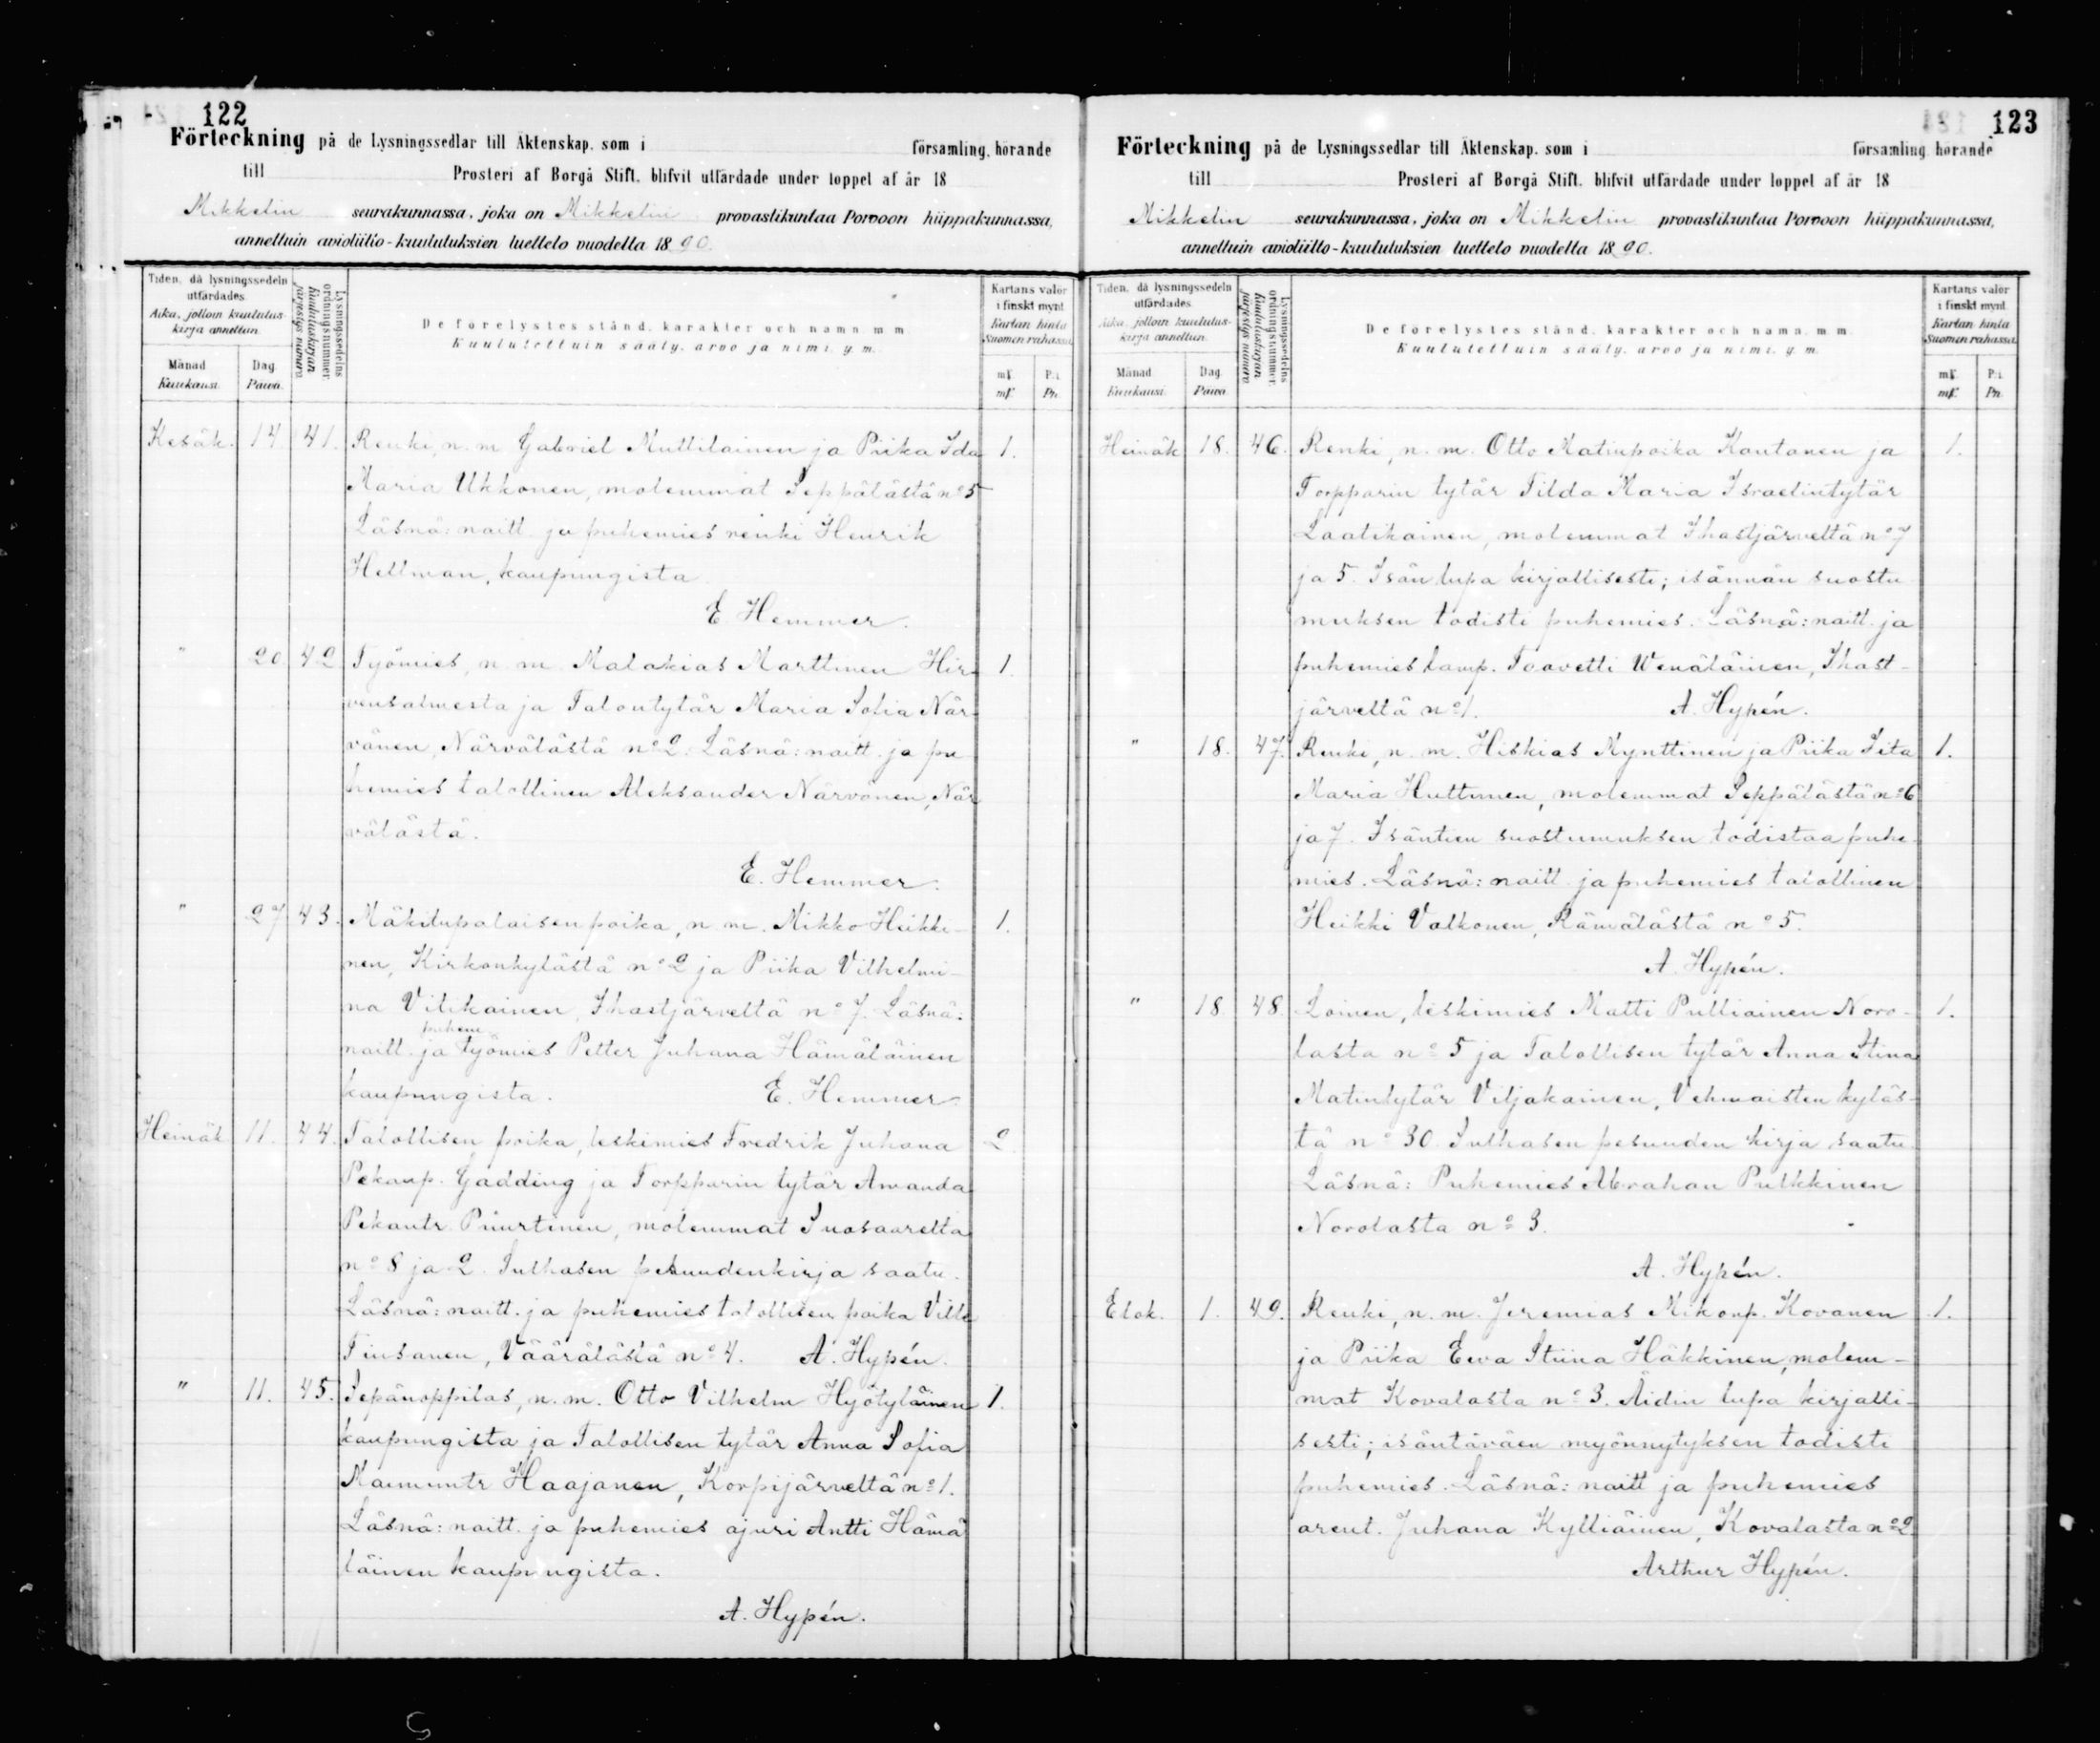 122
Förteckning på de Lysningssedlar till Äktenskap, som i församling, hörande
till Prosteri af Borgå Stift, blifvit utfärdade under loppet af år 18
Mikkelin seurakunnassa, joka on Mikkelin provastikuntaa Porvoon hiippakunnassa,
annettuin avioliitto-kuulutuksien luettelo vuodelta 1890.
Tiden, då lysningssedeln utfärdades.
Aika, jolloin kuulutus-kirja annettiin.
Månad
Kuukausi.
Dag.
Päivä.
Lysningssedelns ordningsnummer.
Kuulutuskirjan järjestys numero.
De förelystes stånd, karakter och namn m.m.
Kuulutettuin sääty, arvo ja nimi, y.m.
Kartans valör i finskt mynt.
Kartan hinta Suomen rahassa.
mk. P:i
mk. Pn.
Kesäk. 14 41. Renki, n. m. Gabriel Muttilainen ja Piika Ida 1.
Maria Ukkonen, molemmat Seppälästä no 5
Läsnä: naitt. ja puhemies renki Henrik
Hellman, kaupungista.
E. Hemmer.
" 20 42 Työmies, n. m. Malakias Marttinen Hir- 1.
vensalmesta ja Talontytär Maria Sofia När-
vänen, Närvälästä no 2. Läsnä: naitt. ja pu
hemies talollinen Aleksander Närvänen, När
välästä.
E. Hemmer.
" 27 43. Mäkitupalaisen poika, n. m. Mikko Heikki- 1.
nen, Kirkonkylästä no 2 ja Piika Vilhelmi-
na Vilikainen, Ihastjärveltä no 7. Läsnä:
puhem
naitt. ja työmies Petter Juhana Hämäläinen
kaupungista. E. Hemmer
Heinäk 11. 44. Talollisen poika, leskimies Fredrik Juhana 2
Pekanp. Gadding ja Torpparin tytär Amanda
Pekantr. Piiurtinen, molemmat Suosaarelta
no 8 ja 2. Sulhasen pesuudenkirja saatu.
Läsnä: naitt. ja puhemies talollisen poika Ville
Tiusanen, Väärälästä no 4. A. Hypén.
" 11. 45. Sepänoppilas, n. m. Otto Vilhelm Hyötyläinen 1.
kaupungista ja Talollisen tytär Anna Sofia
Haajanen, Korpijärveltä no 1.
Läsnä: naitt. ja puhemies ajuri Antti Hämä
läinen kaupungista.
A. Hypén.
123
Förteckning på de Lysningssedlar till Äktenskap, som i församling hörande
till Prosteri af Borgå Stift, blifvit utfärdade under loppet af år 18
Mikkelin seurakunnassa, joka on Mikkelin provastikuntaa Porvoon hiippakunnassa,
annettuin avioliitto-kuulutuksien luettelo vuodelta 1890.
Tiden, då lysningssedeln utfärdades.
Aika, jolloin kuulutus-kirja annettiin.
Månad
Kuukausi.
Dag.
Päivä.
Lysningssedelns ordningsnummer.
Kuulutuskirjan järjestys numero.
De förelystes stånd, karakter och namn, m.m.
Kuulutettuin sääty, arvo ja nimi, y.m.
Kartans valör i finskt mynt.
Kartan hinta Suomen rahassa.
mk. P:i.
mk. Pn.
Heinäk 18. 46. Renki, n. m. Otto Matinpoika Kautanen ja 1.
Torpparin tytär Tilda Maria Israelintytär
Laatikainen, molemmat Ihastjärveltä no 7
ja 5. Isän lupa kirjallisesti; isännän suostu
muksen todisti puhemies. Läsnä: naitt. ja
puhemies lamp. Taavetti Wenäläinen, Ihast-
järveltä no 1. A. Hypén.
" 18. 47. Renki, n. m. Hiskias Kynttinen ja Piika Iita 1.
Maria Huttunen, molemmat Seppälästä no 6
ja 7. Isäntien suostumuksen todistaa puhe
mies. Läsnä: naitt. ja puhemies talollinen
Heikki Valkonen, Rämälästä no 5.
A. Hypén.
" 18 48. Loinen, leskimies Matti Pulliainen Noro- 1.
lasta no 5 ja Talollisen tytär Anna Stina
Matintytär Viljakainen, Vehmaisten kyläs-
tä no 30. Sulhasen pesuuden kirja saatu.
Läsnä: Puhemies Abrahan Pulkkinen
Norolasta no 3.
A. Hypén.
Elok. 1. 49. Renki, n. m. Jeremias Mikonp. Kovanen 1.
ja Piika Ewa Stiina Häkkinen, molem-
mat Kovalasta no 3. Äidin lupa kirjalli-
sesti; isäntäväen myönnytyksen todisti
puhemies. Läsnä: naitt ja puhemies
arent. Juhana Kylliäinen, Kovalasta no 2
Arthur Hypén.